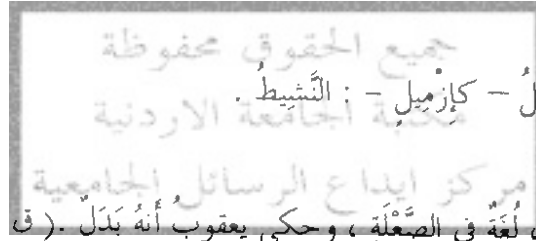 جميع الحقوق محفوظة
لُ – كَإِزْمِيلٍ – : النَّشِيطُ .
مكتبة الجامعة الاردنية
مركز ايداع الرسائل الجامعية
لُغَةٌ في الصَّعْلَةِ ، وحكى يعقوبُ أَنهُ بَدَلٌ .( ق